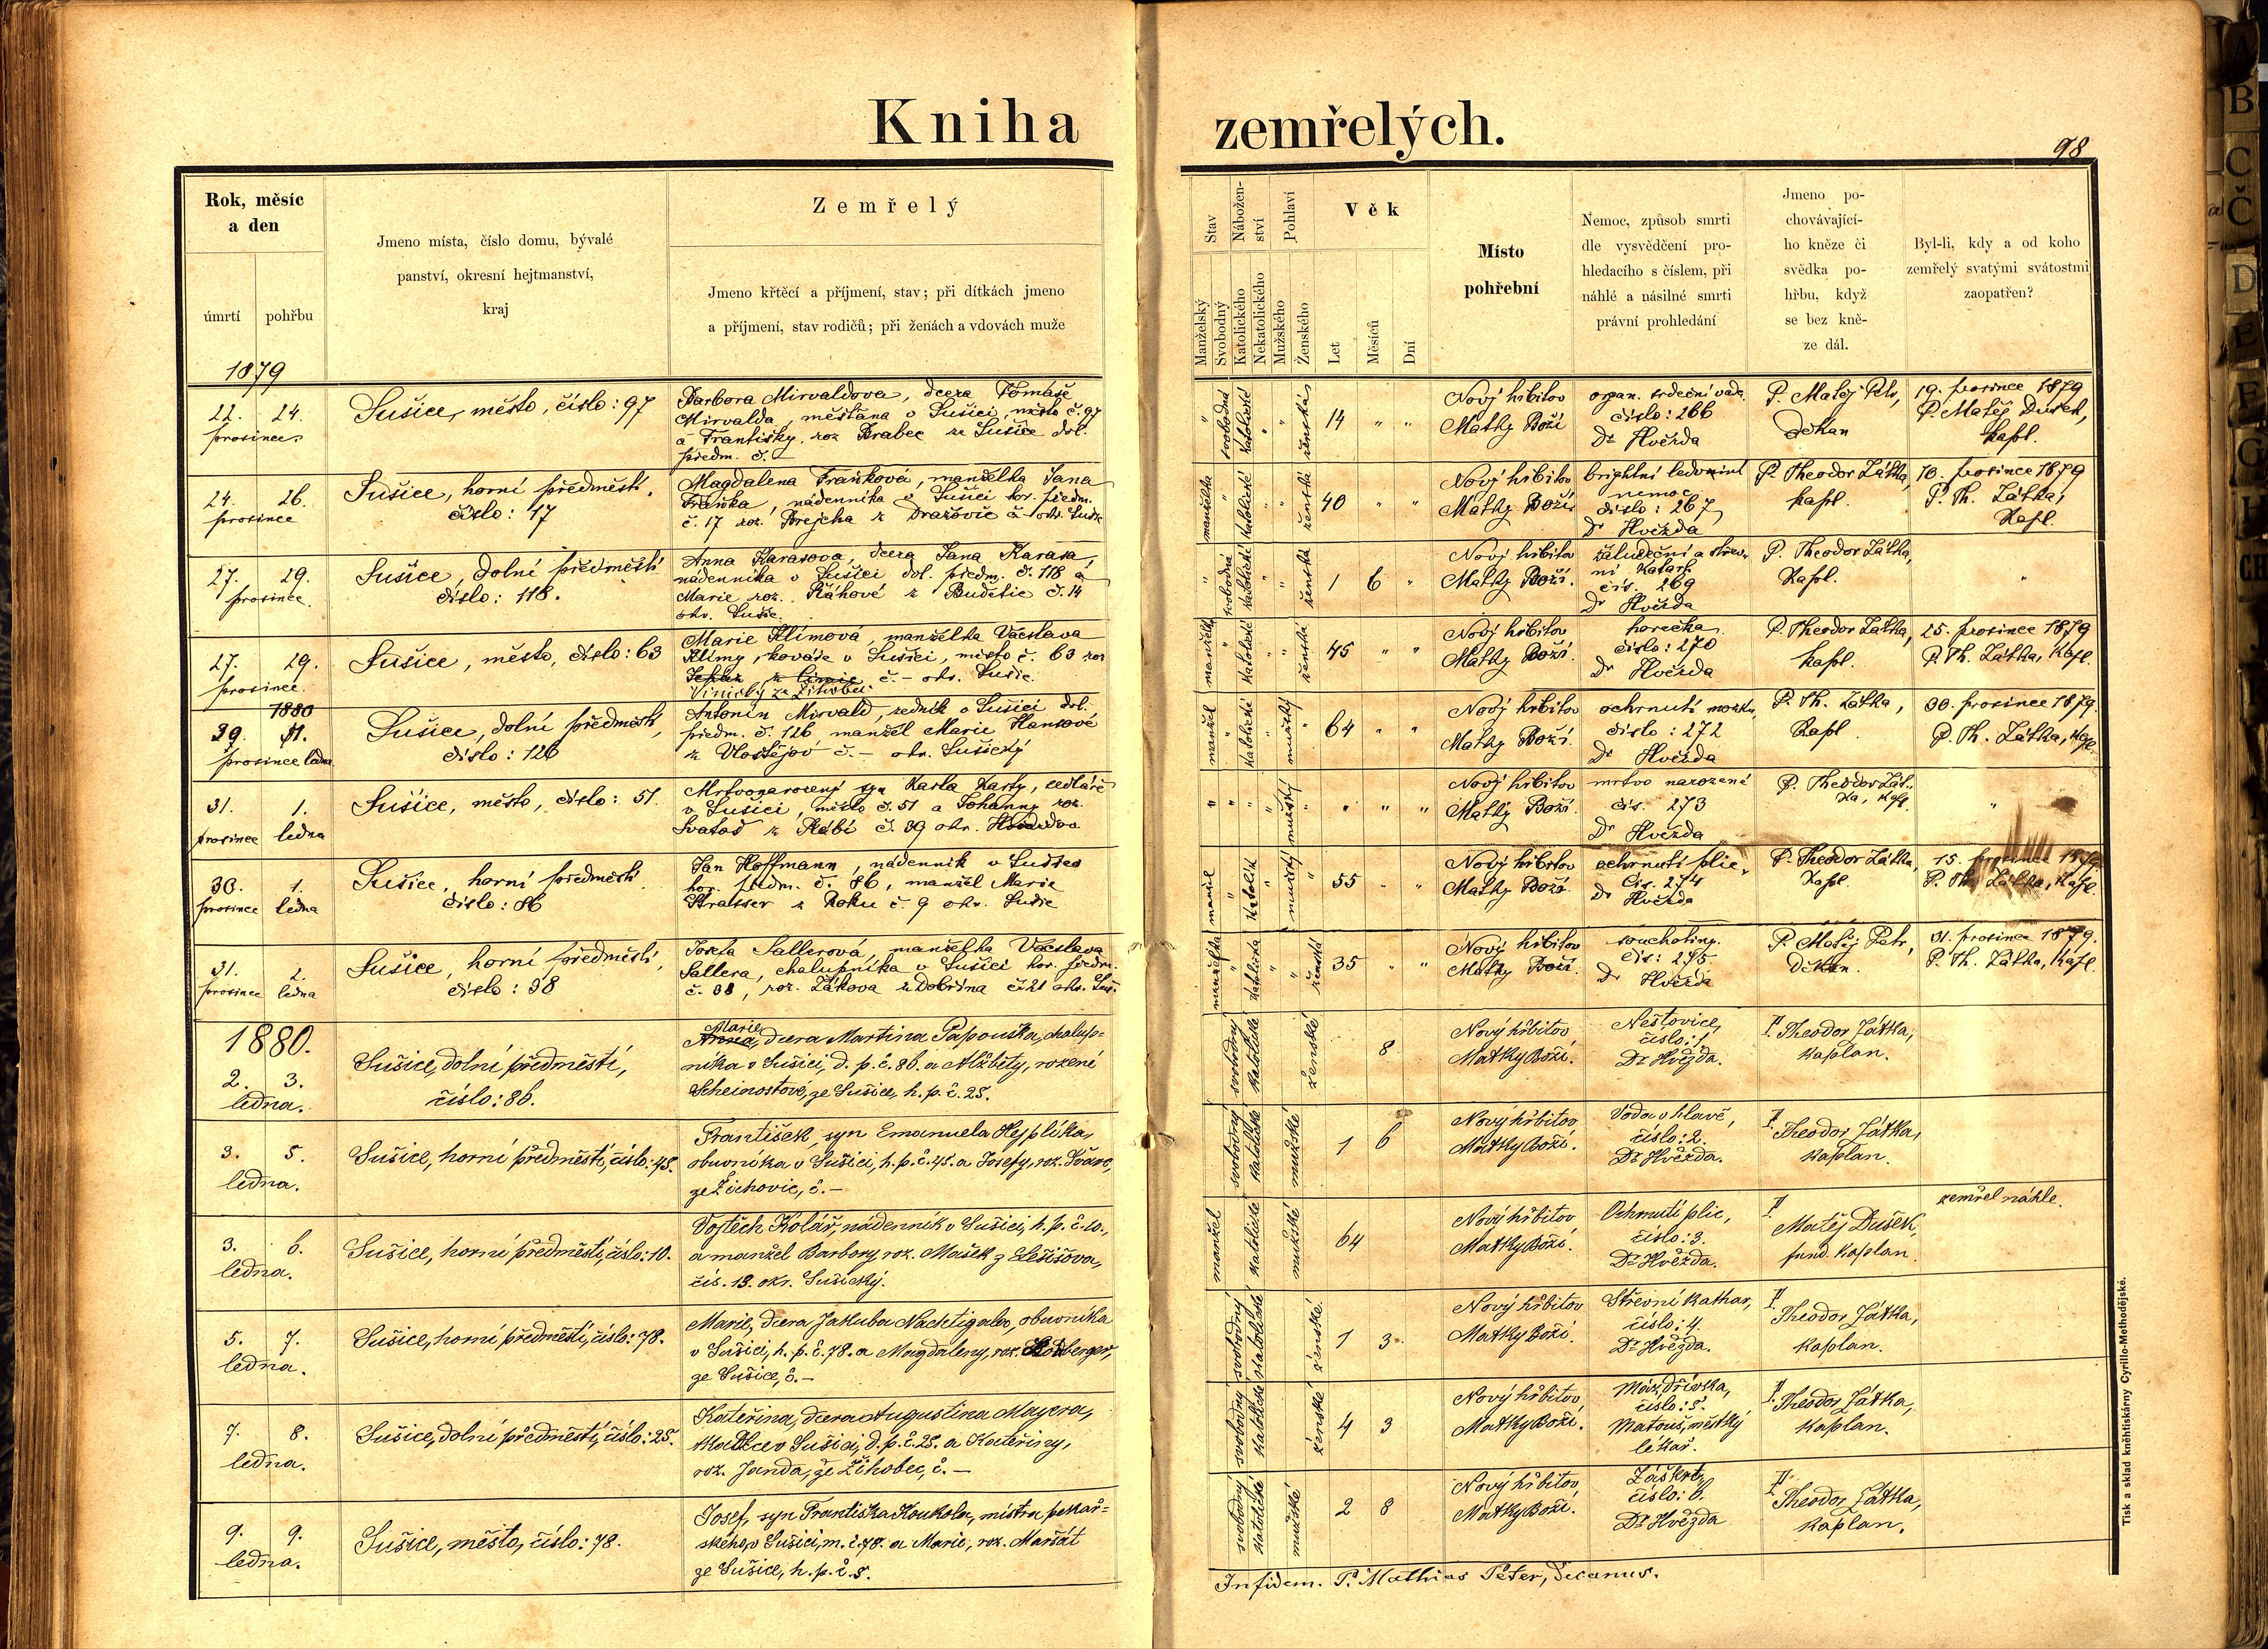 Kniha zemřelých.
98
Rok, měsíc
a den
úmrtí
pohřbu
Jmeno místa, číslo domu, bývalé
panství, okresní hejtmanství,
kraj
Zemřelý
Jmeno křtěcí a příjmení, stav; při dítkách jmeno
a příjmení, stav rodičů; při ženách a vdovách muže
Stav
Manželský
Svobodný
Nábožen-
ství
Katolického
Nekatolického
Pohlaví
Mužského
Ženského
Věk
Let
Měsíců
Dní
Místo
pohřební
Nemoc, způsob smrti
dle vysvědčení pro-
hledacího s číslem, při
náhlé a násilné smrti
právní prohledání
Jmeno po-
chovávající-
ho kněze či
svědka po-
hřbu, když
se bez kně-
ze dál.
Byl-li, kdy a od koho
zemřelý svatými svátostmi
zaopatřen?
1879
22. 24.
prosince
Sušice, město, číslo: 97
Barbora Mirvaldova, dcera Tomáše
Mirvalda, měšťana v Sušici, město č. 97
a Františky, roz. Brabec ze Sušice dol.
předm. č. –
svobodná
katolické
ženská
14 " "
Nový hřbitov
Matky Boží
organ. srdeční vada
číslo: 266
Dr Hvězda
P. Matěj Petr,
děkan
19. prosince 1879
P. Matěj Dušek,
kapl.
24. 26.
prosince
Sušice, horní předměstí,
číslo: 17
Magdalena Fraňková, manželka Jana
Fraňka, nádenníka v Sušici hor. předm.
č. 17 roz. Brejcha z Dražovic č – okr. Sušic
manželka
katolické
ženská
40 " "
Nový hřbitov
Matky Boží
brightní ledvinní
nemoc
číslo: 267
Dr Hvězda
P. Theodor Zátka,
kapl.
18. prosince 1879
P. Th. Zátka,
Kapl.
27. 29.
prosince.
Sušice, dolní předměstí
číslo: 118.
Anna Karasova, dcera Jana Karasa,
nádenníka v Sušici dol. předm. č. 118 a
Marie roz. Ráhové z Budětic č. 14
okr. Sušic.
svobodná
katolické
ženská
1 6 "
Nový hřbitov
Matky Boží.
žaludeční a střev-
ní katarh
čís. 269
Dr Hvězda
P. Theodor Zátka,
Kapl.
"
27. 29.
prosince.
Sušice, město, číslo: 63
Marie Klímová, manželka Václava
Klímy, kováře v Sušici, město č. 63 roz
č. – okr. Sušic
manželka
katolické
ženská
45 " "
Nový hřbitov
Matky Boží.
horečka
číslo: 270
Dr Hvězda
P. Theodor Zátka,
kapl.
25. prosince 1879
P. Th. Zátka, kapl.
1880
29. 1.
prosince ledna
Sušice, dolní předměstí,
číslo: 126
Antonín Mirvald, zedník v Sušici dol.
předm. č. 126, manžel Marie Hanzové
z Vlostějov č. – okr. Sušický
manžel
katolické
mužský
64 " "
Nový hřbitov
Matky Boží.
ochrnutí mozku,
číslo: 272
Dr Hvězda
P. Th. Zátka,
Kapl.
30. prosince 1879
P. Th. Zátka, kapl.
31. 1.
prosince ledna
Sušice, město, číslo: 51.
Mrtvonarozený syn Karla Karty, sedláře
v Sušici, město č. 51 a Johanny roz.
Svatoš z Rábí č. 39 okr.
mužský
" " "
Nový hřbitov
Matky Boží.
mrtvo narozené
čís. 273
Dr Hvězda
P. Theodor Zát-
ka, kapl.
"
30. 1.
prosince ledna
Sušice, horní předměstí
číslo: 86
Jan Hoffmann, nádenník v Sušici
hor. předm. č. 86, manžel Marie
Strasser z Roku č. 9 okr. Sušic
manžel
Katolík
mužský
55 " "
Nový hřbitov
Matky Boží.
ochrnutí plic.
čís. 274
Dr Hvězda
P. Theodor Zátka,
Kapl.
15. prosince 1879
P. Th. Zátka, kapl.
31. 2.
prosince ledna
Sušice, horní předměstí,
číslo: 38
Josefa Sallerová, manželka Václava
Sallera, chalupníka v Sušici hor. předm.
č. 38, roz. Zákova z Dobršína č. 21 okr. Suš.
manželka
katolická
ženská
35 " "
Nový hřbitov
Matky Boží.
souchotiny.
čís: 275.
Dr Hvězda
P. Matěj Petr,
Děkan.
31. prosince 1879.
P. Th. Zátka, kapl.
1880.
2. 3.
ledna.
Sušice, dolní předměstí,
číslo: 86.
Marie
Anna, dcera Martina Papouška, chalup=
níka v Sušici, d. p. č. 86. a Alžběty, rozené
Scheinostové, ze Sušice, h. p. č. 25.
svobodný
katolické
ženské
8
Nový hřbitov
Matky Boží.
Neštovice,
číslo: 1.
Dr Hvězda.
P. Theodor Zátka,
kaplan.
3. 5.
ledna.
Sušice, horní předměstí, číslo: 45.
František, syn Emanuela Hejplíka,
obuvníka v Sušici, h. p. č. 45. a Josefy, roz. Švarc,
ze Žichovic, č. –
svobodný
katolické
mužské
1 6
Nový hřbitov
Matky Boží.
Voda v hlavě,
číslo: 2.
Dr Hvězda.
P. Theodor Zátka,
kaplan.
3. 6.
ledna.
Sušice, horní předměstí, číslo: 10.
Vojtěch Kolář, nádenník v Sušici, h. p. č. 10.,
a manžel Barbory, roz. Mašek z Lešišova,
čís. 13. okr. Sušický.
manžel
katolické
mužské
64
Nový hřbitov
Matky Boží.
Ochrnutí plic,
číslo: 3.
Dr Hvězda.
P. Matěj Dušek,
fund. kaplan.
zemřel náhle.
5. 7.
ledna.
Sušice, horní předměstí, číslo: 78.
Marie, dcera Jakuba Nachtigala, obuvníka
v Sušici, h. p. č. 78. a Magdaleny, roz.
ze Sušice, č. –
svobodný
katolické
ženské
1 3
Nový hřbitov
Matky Boží.
Střevní kathar,
číslo: 4.
Dr Hvězda.
P. Theodor Zátka,
kaplan.
7. 8.
ledna.
Sušice, dolní předměstí, číslo: 25.
Kateřina, dcera Augustina Mayera,
tkalce v Sušici, d. p. č. 25. a Kateřiny,
roz. Janda, ze Žihobec, č. –
svobodný
katolické
ženské
4 3
Nový hřbitov
Matky Boží.
číslo: 5.
Matouš, městský
lékař.
P. Theodor Zátka,
kaplan.
9. 9.
ledna.
Sušice, město, číslo: 78.
Josef, syn Františka Koukola, mistra pekař=
ského, v Sušici, m. č. 78. a Marie, roz. Maršát
ze Sušice, h. p. č. 5.
svobodný
katolické
mužské
2 8
Nový hřbitov,
Matky Boží.
Záškrt,
číslo: 6.
Dr Hvězda
P. Theodor Zátka,
kaplan.
In fidem. P. Mathias Peter, Decanus.
Tisk a sklad kněhtiskárny Cyrillo-Methodějské.
A
B
C
Č
D
E
F
H
CH